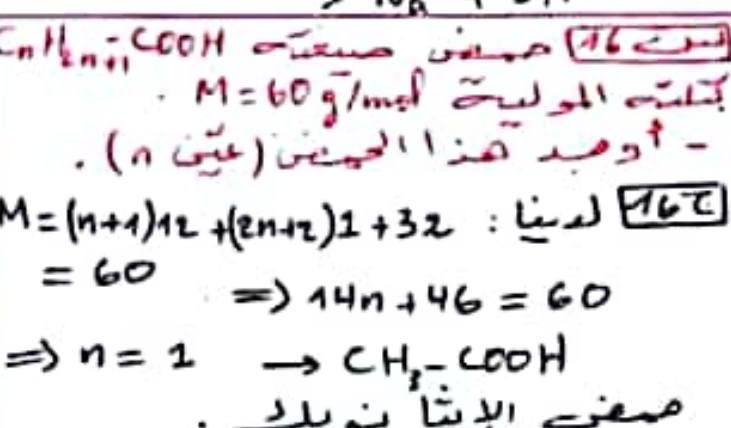 س16 حمض صيغته CnH2n+1-COOH
كتلته المولية M=60 g/mol .
- أوجد هذا الحمض (عيّن n) .
ج16 لدينا : M=(n+1)12+(2n+2)1+32
= 60 => 14n+46 = 60
=> n = 1 → CH3-COOH
حمض الإيثانويك .